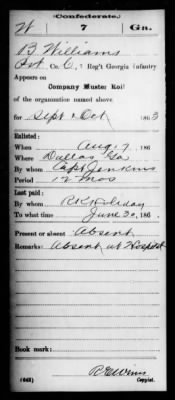 (Confederate.)
W 7 Ga.
B Williams
Pvt, Co. C, 7 Reg't Georgia Infantry
Appears on
Company Muster Roll
of the organization named above
for Sept & Oct, 1863
Enlisted:
When Aug. 7, 186
Where Dallas Ga
By whom Capt Jenkins
Period 12 Mos
Last paid:
By whom
To what time June 30, 186
Present or absent Absent
Remarks: Absent at Hospital
Book mark:
(642)
Copyist.